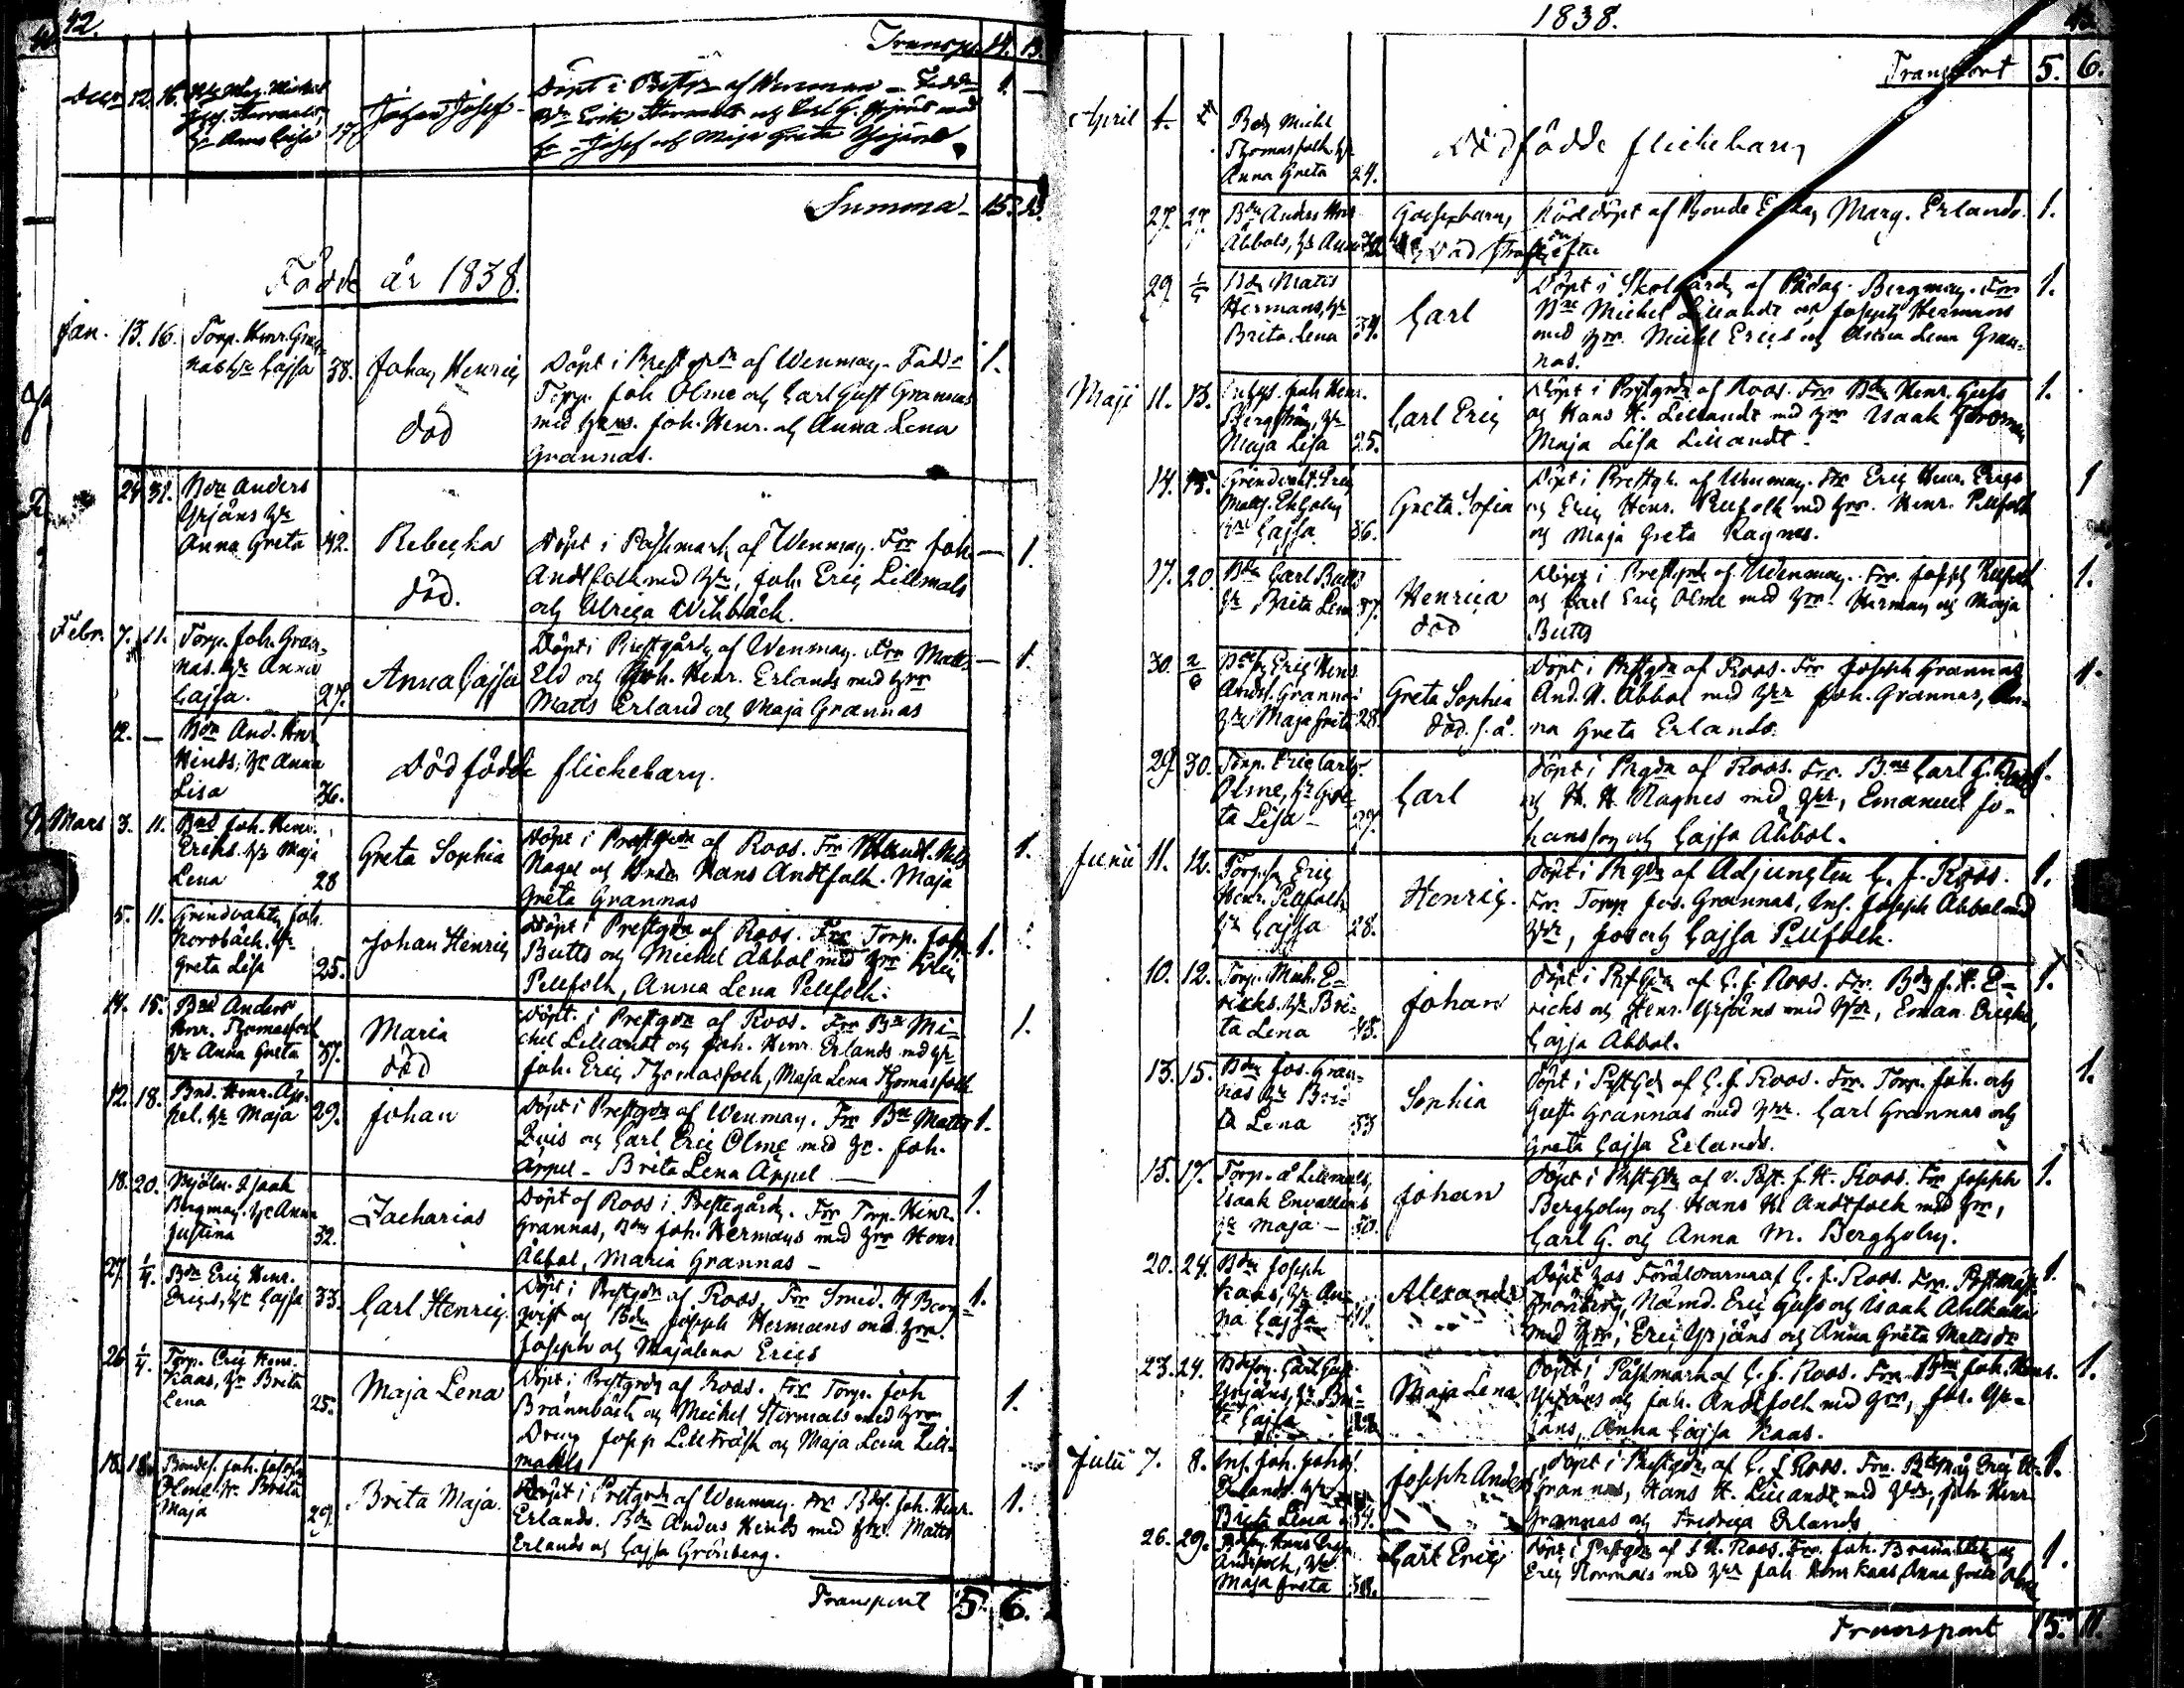 42.
Transp. 14. 13.
Decr 12. 16.
Johan Josef
Döpt i
1. —
Anna Cajsa 17
och Maja Greta
Summa 15. 13.
Födde år 1838.
Jan. 13. 16. Torp. Henr. Gran-
nas hr Cajsa 38. Johan Henric Döpt i Prestgrdn af Wenman. Fadd.
1.
Torp. Joh Olme och Carl Gust Grannas
död med hrns. Joh. Henr. och Anna Lena
Grannas.
24 31. Bdn Anders
Yrjäns hr
Anna Greta 42. Rebecka Döpt i Påssmark af Wenman. Frr Joh — 1.
Andtfolk med hrr, Joh. Eric Lillmåls
död. och Ulrica Wikbäck.
Febr. 7. 11. Torp. Joh. Gran-
nas. hr Anna
Cajsa. 27. Anna Cajsa
Döpt i Prestgården af Wenman. Frr Matts — 1.
Eld och Joh. Henr. Erlands med hrr
Matts Erland och Maja Grannas
12. — Bdn And. Henr
Hinds, hr Anna
Lisa 36. Död födde flickebarn.
Mars 3. 11. Bnd Joh. Henr.
Ericks. hr Maja
Lena 28 Greta Sophia
Döpt i Prestgrdn af Roos. Frr
Nagel och Hans Andtfolk. Maja
Greta Grannas
1.
5. 11. Grindvakt. Joh.
Korsbäck. hr
Greta Lisa 25. Johan Henric
Döpt i Prestgdn af Roos. Frr Torp. Josp.
Butts och Michel Abbol med hrr Eric 1.
Pellfolk, Anna Lena Pellfolk.
14. 15. Bnd Anders
Henr. Thomasfolk
hr Anna Greta 37. Maria
död
Döpt i Prestgdn af Roos. Frr Bdn Mi-
chel Lillandt och Joh. Henr. Erlands med hrr 1.
Joh. Eric Thomasfolk, Maja Lena Thomasfolk
12. 18. Bnd. Henr. Ap-
pel. hr Maja 29. Johan
Döpt i Prestgdn af Wenman. Frr Bdn Matts 1.
Quis och Carl Eric Olme med hr. Joh.
Appel - Brita Lena Appel
18. 20. Mjöln. Isaak
Bergman. hr Anna
Justina 32. Zacharias
Döpt af Roos i Prestegården. Frr Torp. Henr. 1.
Grannas, Bdn Joh. Hermans med hrr Henr.
Abbol, Maria Grannas -
27. 1/4. Bdn Eric Henr.
Erics, hr Cajsa 33. Carl Henric.
Döpt i Prestgdn af Roos. Frr Smed. H Berg- 1.
qvist och Bdn Joseph Hermans med hrr.
Joseph och Majalena Erics
26 1/4. Torp. Eric Henr.
Kaas, hr Brita
Lena 25. Maja Lena
Döpt i Prestgrdn af Roos. Frr Torp. Joh
Brännbäck och Michel Hermals med hrr 1.
Dreng Josp Lillfräsk och Maja Lena Lill-
måls
18. 18. Bondes. Joh. Joseph
Olme hr Brita
Maja 29. Brita Maja.
Döpt i Prestgrdn af Wenman. Frr Bds. Joh. Henr. 1.
Erlands. Bdn Anders Hinds med hrr. Matts
Erlands och Cajsa Grönberg.
Transport 5. 6.
1838. 43.
Transport 5. 6.
April 1. Bdn Michl
Thomasfolk hr
Anna Greta 24. Dödfödde flickebarn
27. 27. Bdn Anders Henr
Abbols, hr Anna Gossebarn, Nöddöpt af Bonde Enkan Marg. Erlands. 1.
död strax efter
29. 1/5 Bdn Matts
Hermans, hr
Brita Lena 34. Carl
Döpt i Skolgårdn af Pædag. Bergman. Frr 1.
Bne Michel Lillandt och Joseph Hermans
med hrr. Michel Erics och Anna Lena Gran-
nas.
Maji 11. 13. Inhys. Joh Henr.
Bergström, hr
Maja Lisa 25. Carl Eric
Döpt i Prstgrdn af Roos. Frr Bdn Henr. Guss 1.
och Hans H. Lillandt med hrr Isaak
Maja Lisa Lillandt.
14. 15. Grindvakt. Eric
Matts. Ekholm
hr Cajsa 36. Greta Sofia
Döpt i Prestgr. af Wenman. Frr Eric Henr. Erics 1
och Eric Henr. Pellfolk med hrr. Henr. Pellfolk
och Maja Greta Ragnes.
17. 20. Bdn Carl Butts
hr Brita Lena 37. Henrica
död
Döpt i Prestgrdn af Wenman. Frr. Joseph Pellfolk 1.
och Carl Eric Olme med hrr. Herman och Maja
Butts
30. 2/6 Eric Henr.
Anders. Grannas
hr Maja Greta 28. Greta Sophia
död. s. å.
Döpt i Prstgdn af Roos. Frr Joseph Grannas 1.
And. H. Abbol med hrr Joh. Grannas, An-
na Greta Erlands.
29. 30. Torp. Eric Carls.
Olme, hr Gre-
ta Lisa - 27. Carl
Döpt i Prgdn af Roos. Frr. Bne Carl G. 1.
och H. H. Ragnes med hrr, Emanuel Jo-
hansson och Cajsa Abbol.
Junii 11. 12. Torp. Eric
Henr. Pellfolk
hr Cajsa 28. Henric.
Döpt i Prgdn af Adjungten C. J. Roos. 1.
Frr Torp. Jos. Grannas, Inh. Joseph Abbol med
hrr, Jos och Cajsa Pellfolk.
10. 12. Torp. Mich. E-
ricks. hr Bri-
ta Lena 43. Johan
Döpt i Prstgdn af C. J. Roos. Frr. Bdn J. H. E- 1.
ricks och Henr. Yrjäns med hrr, Eman. Ericks,
Cajsa Abbol.
13. 15. Bdn Jos. Gran-
nas hr Bri-
ta Lena 33 Sophia
Döpt i Prstgdn af C. J. Roos. Frr. Torp. Joh. och 1.
Gust. Grannas med hrr. Carl Grannas och
Greta Cajsa Erlands.
15. 17. Torp. å Lillmåls,
Isaak Envalls
hr Maja - 30. Johan
Döpt i Prstgdn af v. Past. J. H. Roos. Frr Joseph 1.
Bergholm och Hans H. Andtfolk med hrr,
Carl G. och Anna M. Bergholm.
20. 24. Bdn Joseph
Kaas, hr An-
na Cajsa 41. Alexander
Döpt hos Föräldrarna af C. J. Roos. Frr. 1.
Nämnd. Eric Guss och Isaak
med hrr, Eric Yrjäns och Anna Greta
23. 24. Bdson. Carl Gust.
Yrjäns, hr Bri-
ta Cajsa Maja Lena
Döpt i Påssmark af C. J. Roos. Frr Bdn Joh. Henr. 1.
Yrjäns och Joh. Andtfolk med hrr, Jos. Yr-
jäns, Anna Cajsa Kaas.
Julii 7. 8. Inh. Joh. Johs.
Erlands. hr
Brita Lena 34. Joseph Anders
Döpt i Prestgdn af C. J. Roos. Frr. Eric H. 1.
Grannas, Hans H. Lillandt med hrr, Joh Henr
Grannas och Fredrica Erlands
26. 29. Hans
Andtfolk, hr
Maja Greta 38. Carl Eric
Döpt i Prstgdn af J. H. Roos. Frr. Joh. Brännbäck och 1.
Eric Normals med hrr Joh Henr Kaas, Anna Greta
Transport 15. 11.